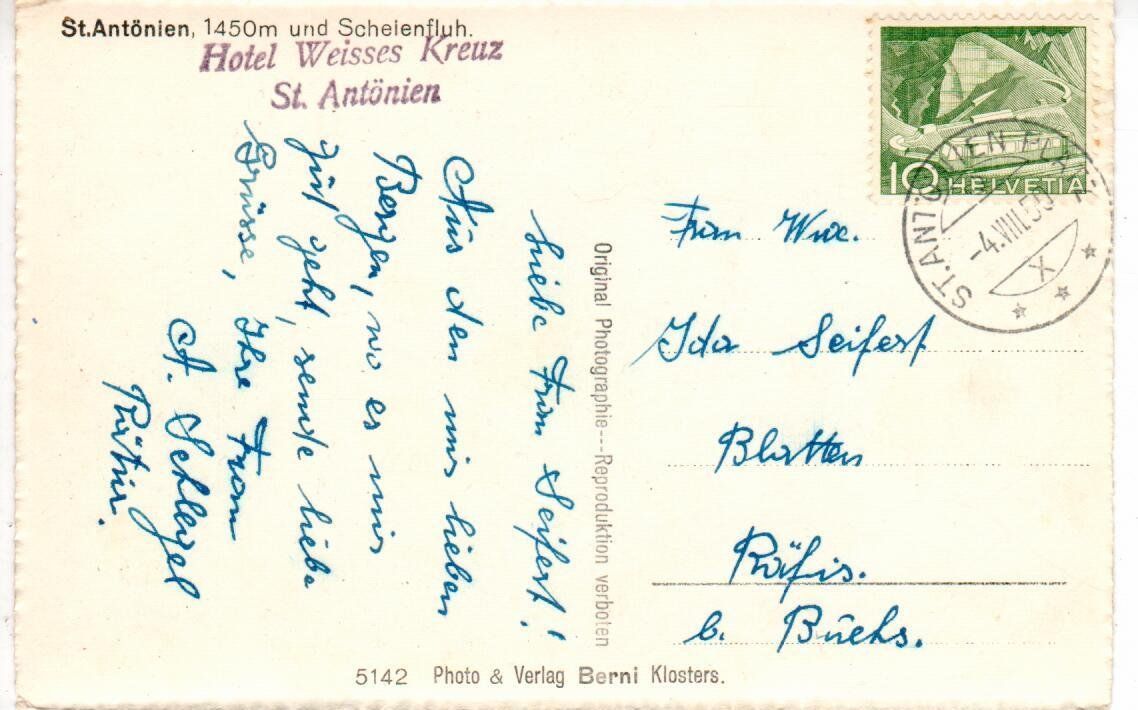 St.Antönien, 1450m und Scheienfluh.
Hotel Weisses Kreuz
St. Antönien
10 HELVETIA
ST. ANTÖNIEN
-4.VIII.5
X
Liebe Frau Seifert!
Aus den mir lieben
Bergen, wo es mir
gut geht, sende liebe
Grüsse, Ihre Frau
A. Schlegel
Original Photographie---Reproduktion verboten
Frau Wwe.
Ida Seifert
Blatten
Räfis.
b. Buchs.
5142 Photo & Verlag Berni Klosters.